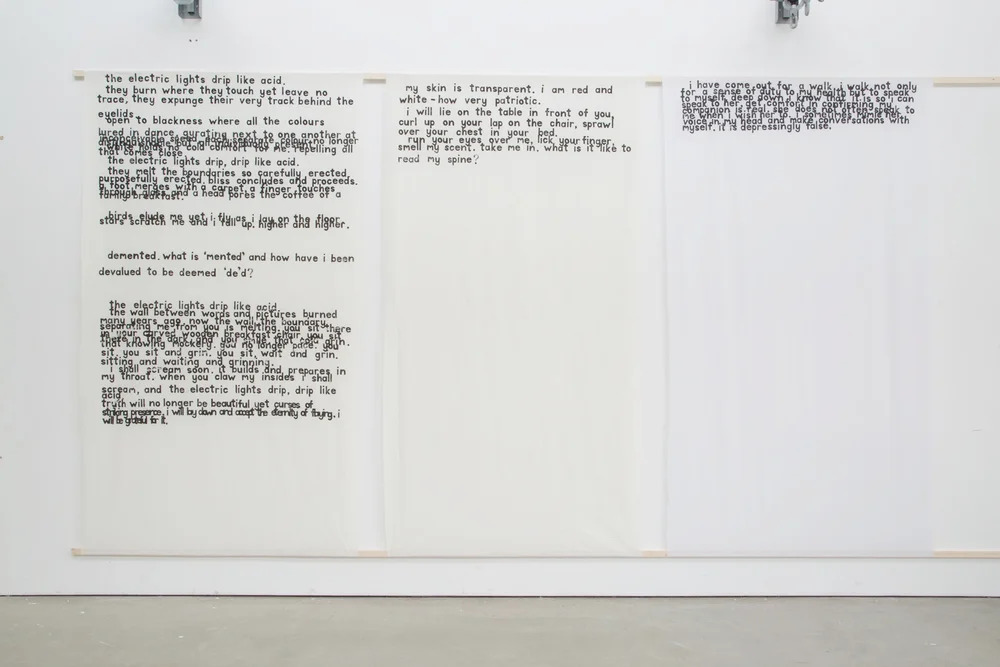 the electric lights drip like acid.
they burn where they touch yet leave no
trace, they expunge their very track behind the
eyelids.
open to blackness where all the colours
lured in dance, gyrating next to one another at
inconceivable speed. each colour no longer
distinguishable but all
white holds no cold comfort for me. repelling all
that comes close.
the electric lights drip, drip like acid.
they melt the boundaries so carefully erected,
purposefully erected. bliss concludes and proceeds.
a foot merges with a carpet, a finger touches
through glass and a head pores the coffee of a
family breakfast.
birds elude me yet i fly as i lay on the floor.
stars scratch me and i fall up. higher and higher.
demented. what is 'mented' and how have i been
devalued to be deemed 'de'd'?
the electric lights drip like acid.
the wall between words and pictures burned
many years ago. now the wall, the boundary
separating me from you is melting. you sit there
in your carved wooden breakfast chair, you sit
there in the dark and you that cold grin.
that knowing mockery. you no longer pace. you
sit. you sit and grin. you sit, wait and grin.
sitting and waiting and grinning.
i shall scream soon. it builds and prepares in
my throat. when you claw my insides i shall
scream, and the electric lights drip, drip like
acid.
truth will no longer be beautiful yet curses of
striking presence. i will lay down and accept the eternity of flaying. i
will be grateful for it.
my skin is transparent. i am red and
white - how very patriotic.
i will lie on the table in front of you,
curl up on your lap on the chair, sprawl
over your chest in your bed.
run your eyes over me, lick your finger,
smell my scent. take me in. what is it like to
read my spine?
i have come out for a walk. i walk not only
for a sense of duty to my health but to speak
to myself. deep down i know that it is so i can
speak to her. get comfort in confirming my
companion is real. she does not always speak to
me when i wish her to. i sometimes mimic her
voice in my head and make conversations with
myself. it is depressingly false.